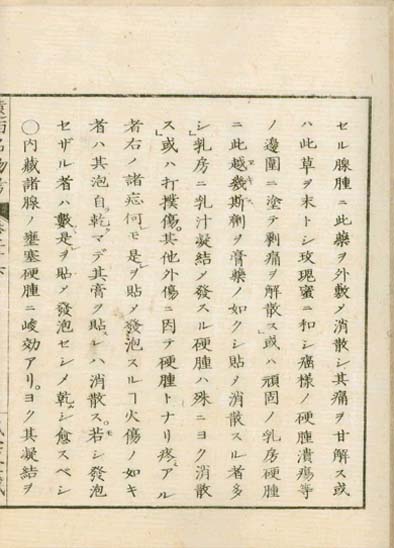 セル腺腫ニ此藥ヲ外敷メ消散シ其痛ヲ甘解ス或
ハ此草ヲ末トシ玫瑰蜜ニ和シ癌様ノ硬腫潰瘍等
ノ邊圍ニ塗テ劇痛ヲ解散ス」或ハ頑固ノ乳房硬腫
ニ此越幾斯劑ヲ膏藥ノ如クシ貼メ消散スル者多
シ」乳房ニ乳汁凝結メ發スル硬腫ハ殊ニヨク消散
ス」或ハ打撲傷其他外傷ニ因テ硬腫トナリ疼アル
者右ノ諸症何レモ是ヲ貼メ發泡スルヿ火傷ノ如キ
者ハ其泡自乾マデ其膏ヲ貼レハ消散ス若シ發泡
セザル者ハ數是ヲ貼メ發泡セシメ乾シ愈スベシ
〇内藏諸腺ノ壅塞硬腫ニ峻効アリ。ヨク其凝結ヲ